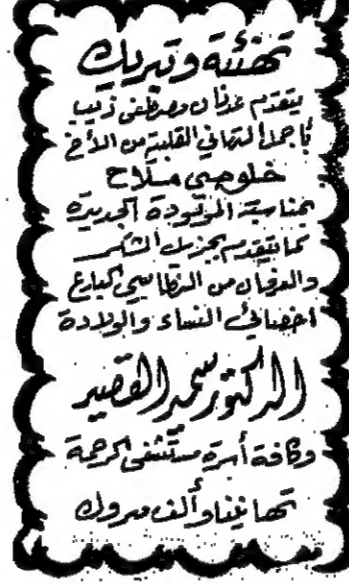 تهنئة وتبريك
يتقدم عدنان ومصطفى ذيب
بأجمل التهاني القلبية من الأخ
خلوصي ملاح
بمناسبة المولودة الجديدة
كما يتقدم بجزيل الشكر
والعرفان من النطاسي البارع
اخصائي النساء والولادة
الدكتور سمير القصير
وكافة أسرة مستشفى الرحمة
تهانينا وألف مبروك